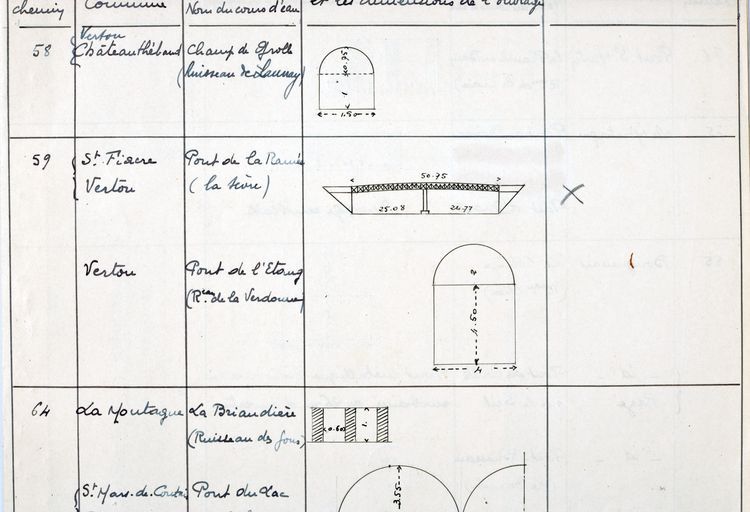 chemin Commune Nom du cours d'eau et les dimensions de l'ouvrage
Vertou
58 Châteauthébaud Champ de Grolle
(Ruisseau de Launay)
0.75
1
1.50
59 St. Fiacre Pont de la Ramée
Vertou (la Sèvre)
50.75
25.08
Vertou Pont de l'Etang
(R.eau de la Verdonnière
2
4.50
4
64 La Montagne La Briandière
(Ruisseau des fous)
0.60
1.
St Mars-de-Coutais Pont du Lac
3.55